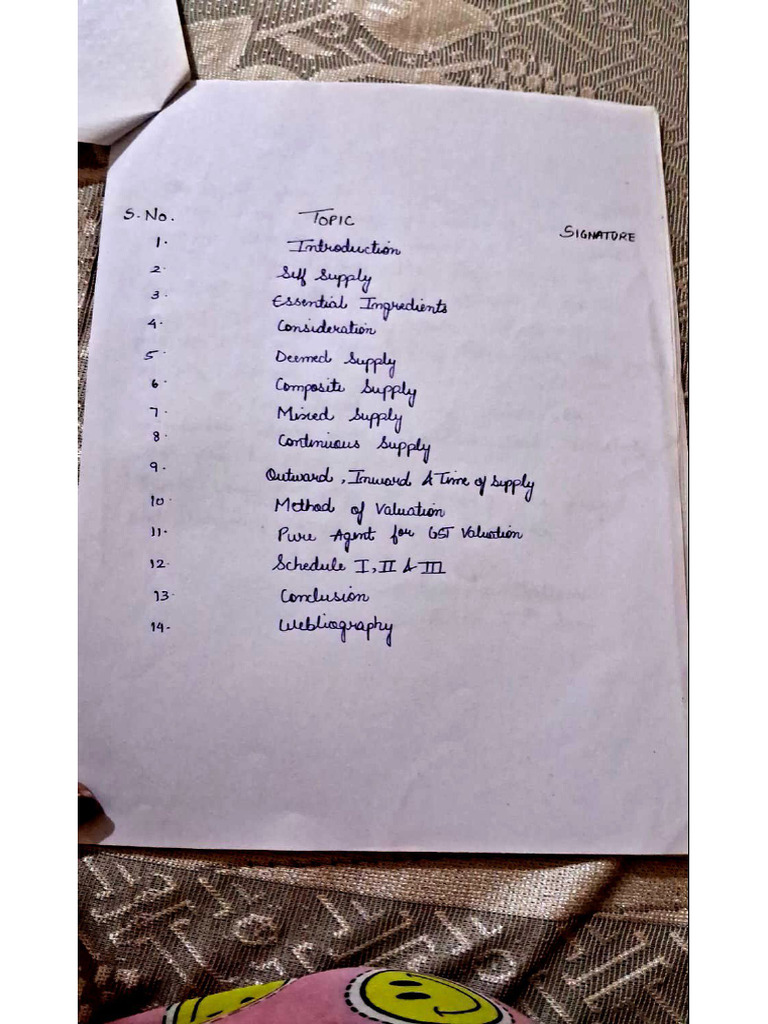 S. No. TOPIC SIGNATURE
1. Introduction
2. Self Supply
3. Essential Ingredients
4. Consideration
5. Deemed Supply
6. Composite Supply
7. Mixed Supply
8. Continuous Supply
9. Outward, Inward & Time of Supply
10. Method of Valuation
11. Pure Agent for GST Valuation
12. Schedule I, II & III
13. Conclusion
14. Webliography